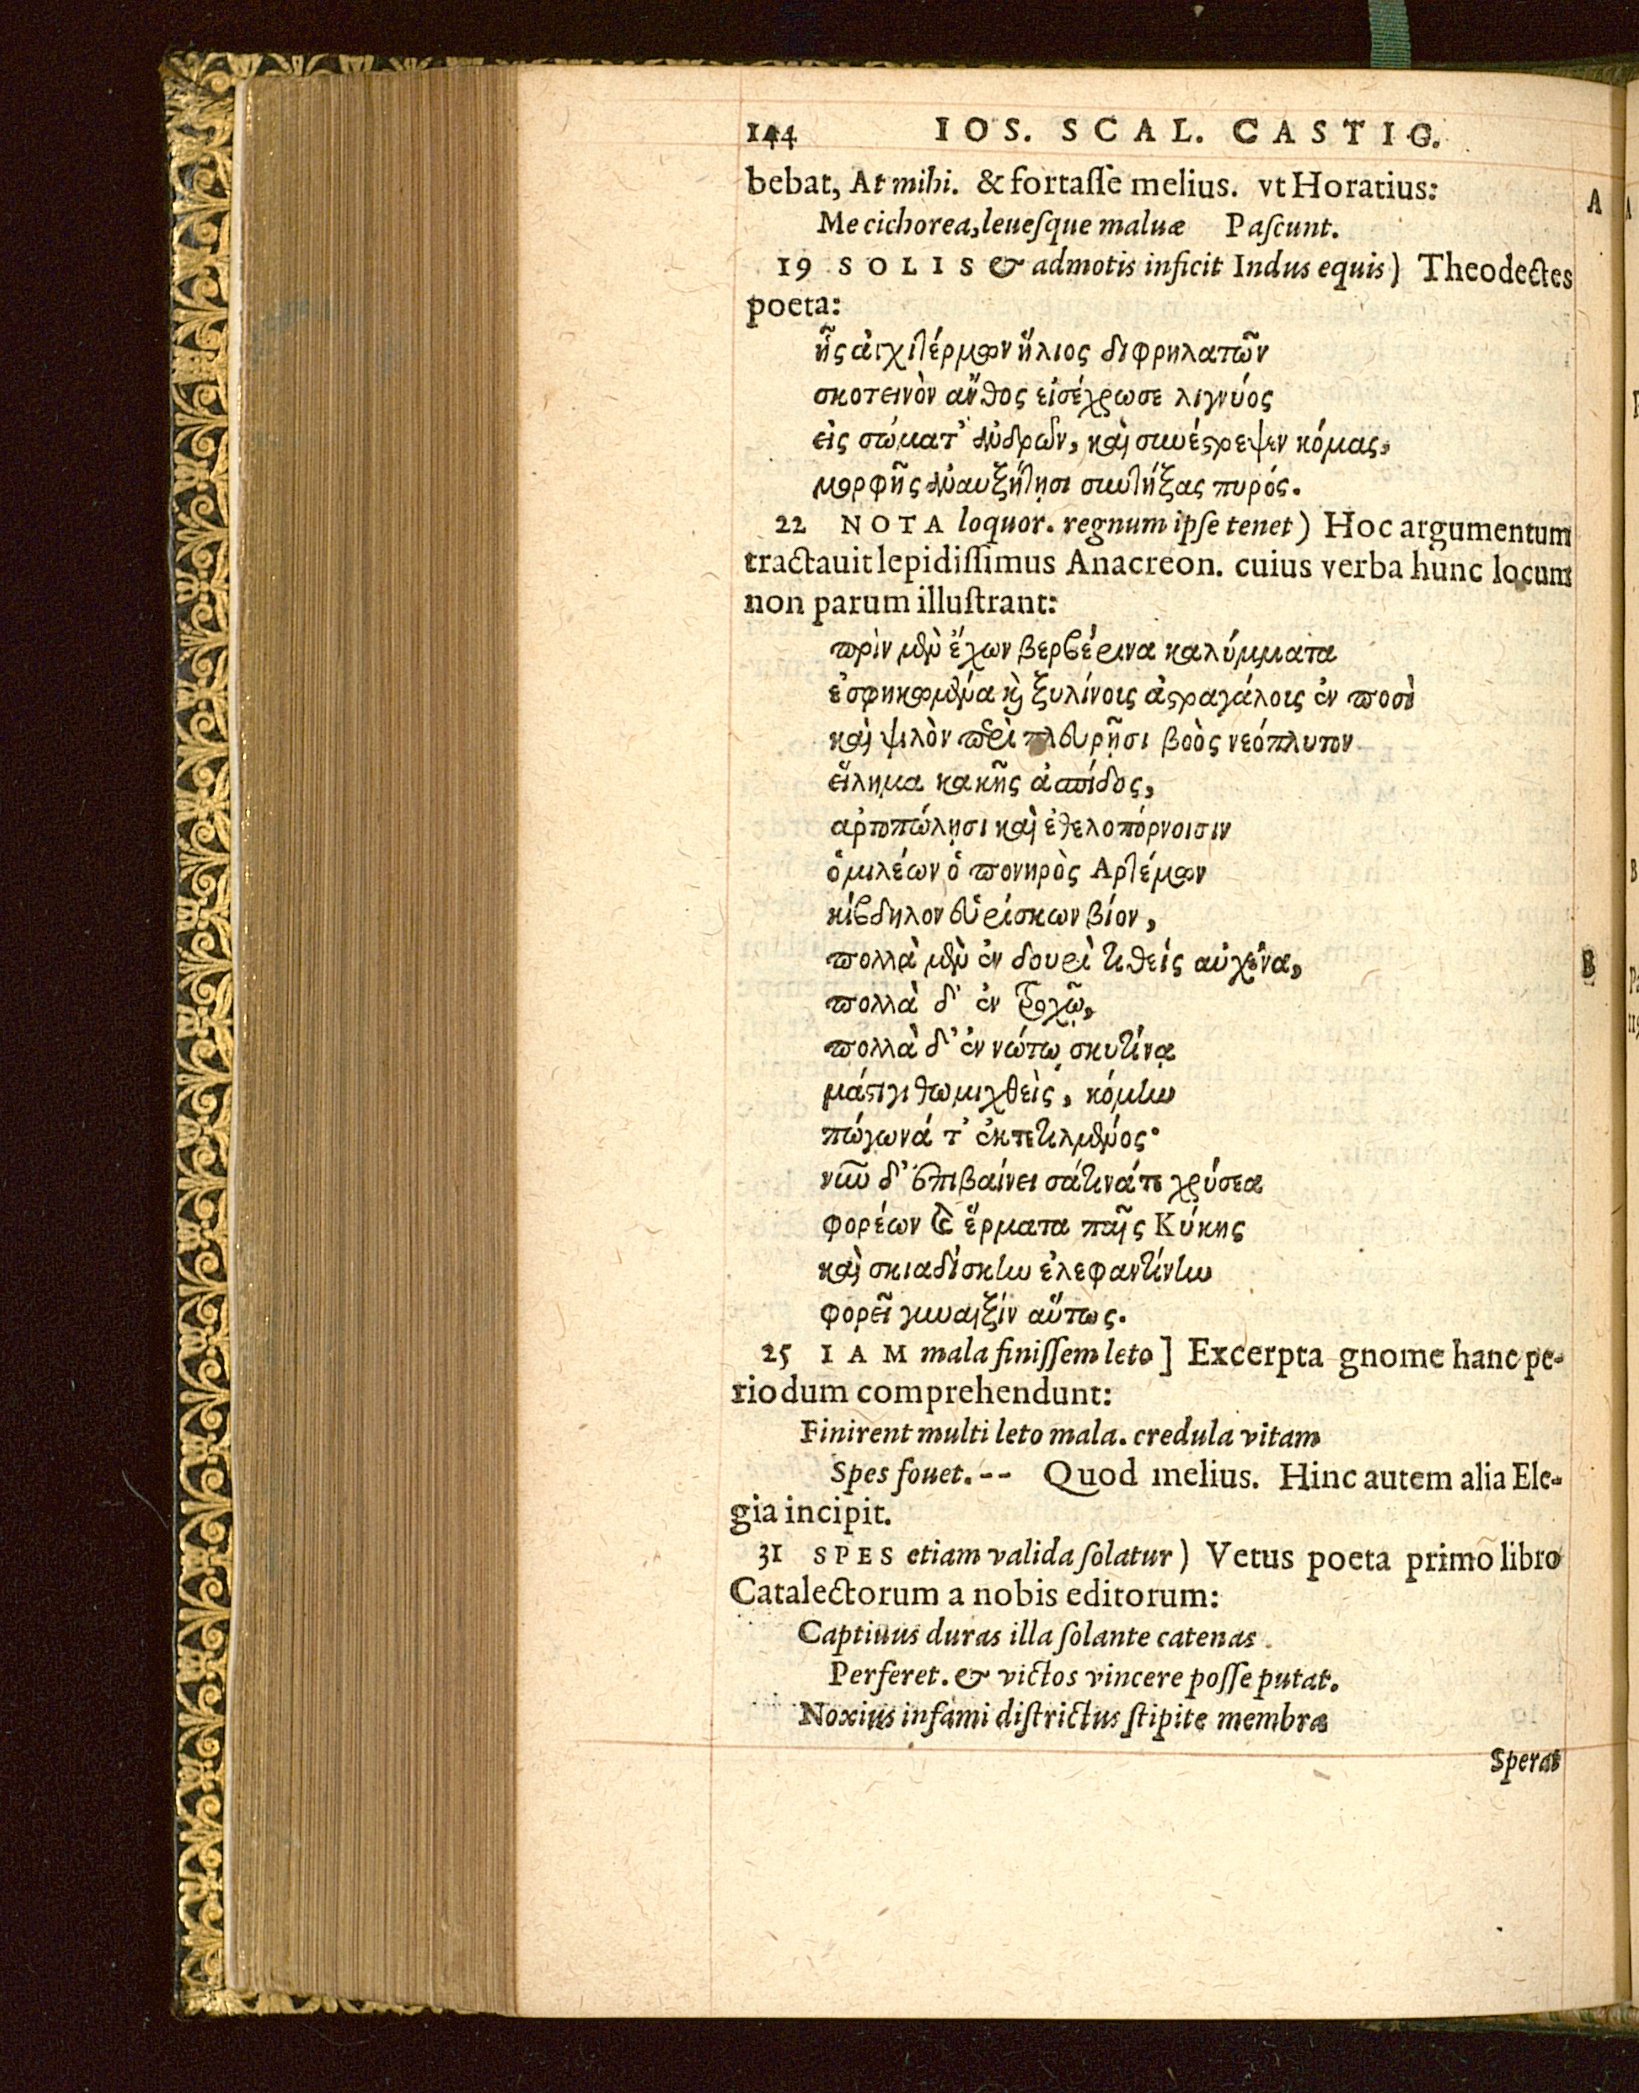 144 IOS. SCAL. CASTIG.
bebat, At mihi. & fortaſſe melius. vt Horatius:
A
Me cichorea, leueſque maluæ Paſcunt.
19 SOLIS & admotis inficit Indus equis) Theodectes
poeta:
ἧς ἀγχιτέρμων ἥλιος διφρηλατῶν
σκοτεινὸν ἄνθος εἰσέχρωσε λιγνύος
εἰς σώματ' ἀνδρῶν, καὶ συνέστρεψεν κόμας,
μορφῆς ἀναυξήτησι συντήξας πυρός.
22 NOTA loquor. regnum ipſe tenet) Hoc argumentum
tractauit lepidiſſimus Anacreon. cuius verba hunc locum
non parum illuſtrant:
πρὶν μὲν ἔχων βερβέρινα καλύμματα
ἐσφηκωμένα καὶ ξυλίνοις ἀστραγάλοις ἐν ποσὶ
καὶ ψιλὸν περὶ πλευρῇσι βοὸς νεόπλυτον
εἴλημα κακῆς ἀσπίδος,
αρτοπώλησι καὶ ἐθελοπόρνοισιν
ὁμιλέων ὁ πονηρὸς Αρτέμων
κίβδηλον εὑρίσκων βίον,
πολλὰ μὲν ἐν δουρὶ τιθεὶς αὐχένα,
B
πολλὰ δ' ἐν τροχῷ,
πολλὰ δ' ἐν νώτῳ σκυτίνᾳ
μάστιγι θωμιχθεὶς, κόμην
πώγωνά τ' ἐκτετιλμένος·
νῦν δ' ἐπιβαίνει σάτινάτε χρύσεα
φορέων ἕρματα παῖς Κύκης
καὶ σκιαδίσκην ἐλεφαντίνην
φορεῖ γυναιξίν αὔτως.
25 IAM mala finiſſem leto] Excerpta gnome hanc pe-
riodum comprehendunt:
Finirent multi leto mala. credula vitam
Spes fouet. -- Quod melius. Hinc autem alia Ele-
gia incipit.
31 SPES etiam valida ſolatur) Vetus poeta primo libro
Catalectorum a nobis editorum:
Captiuus duras illa ſolante catenas
Perferet. & victos vincere poſſe putat.
Noxius infami diſtrictus ſtipite membra
Sperat